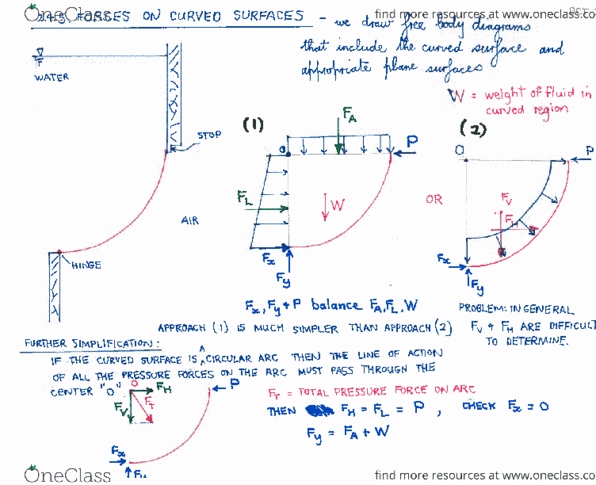 OneClass
find more resources at www.oneclass.co
2.4.5 FORCES ON CURVED SURFACES - we draw free body diagrams
that include the curved surface and
appropriate plane surfaces
WATER
STOP
AIR
HINGE
W = weight of fluid in
curved region
(1)
F_A
O
P
F_L
W
F_x
F_y
OR
(2)
O
P
F_V
F_H
F_x
F_y
F_x, F_y + P balance F_A, F_L, W
PROBLEM: IN GENERAL
F_V + F_H ARE DIFFICULT
TO DETERMINE.
APPROACH (1) IS MUCH SIMPLER THAN APPROACH (2)
FURTHER SIMPLIFICATION:
IF THE CURVED SURFACE IS A CIRCULAR ARC THEN THE LINE OF ACTION
OF ALL THE PRESSURE FORCES ON THE ARC MUST PASS THROUGH THE
CENTER "O"
O
F_H
P
F_V
F_T
F_x
F_T = TOTAL PRESSURE FORCE ON ARC
THEN F_H = F_L = P, CHECK F_x = 0
F_y = F_A + W
OneClass
find more resources at www.oneclass.co